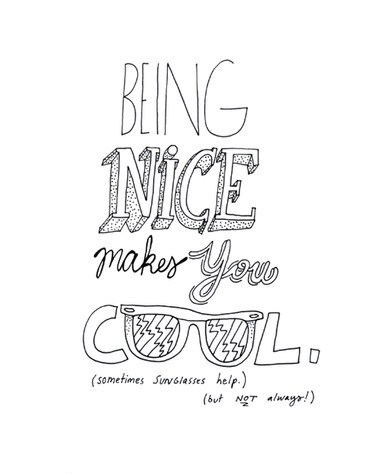 BEING
NiCE
makes You
COOL.
(sometimes SUNGlasses help.)
(but NOT always!)